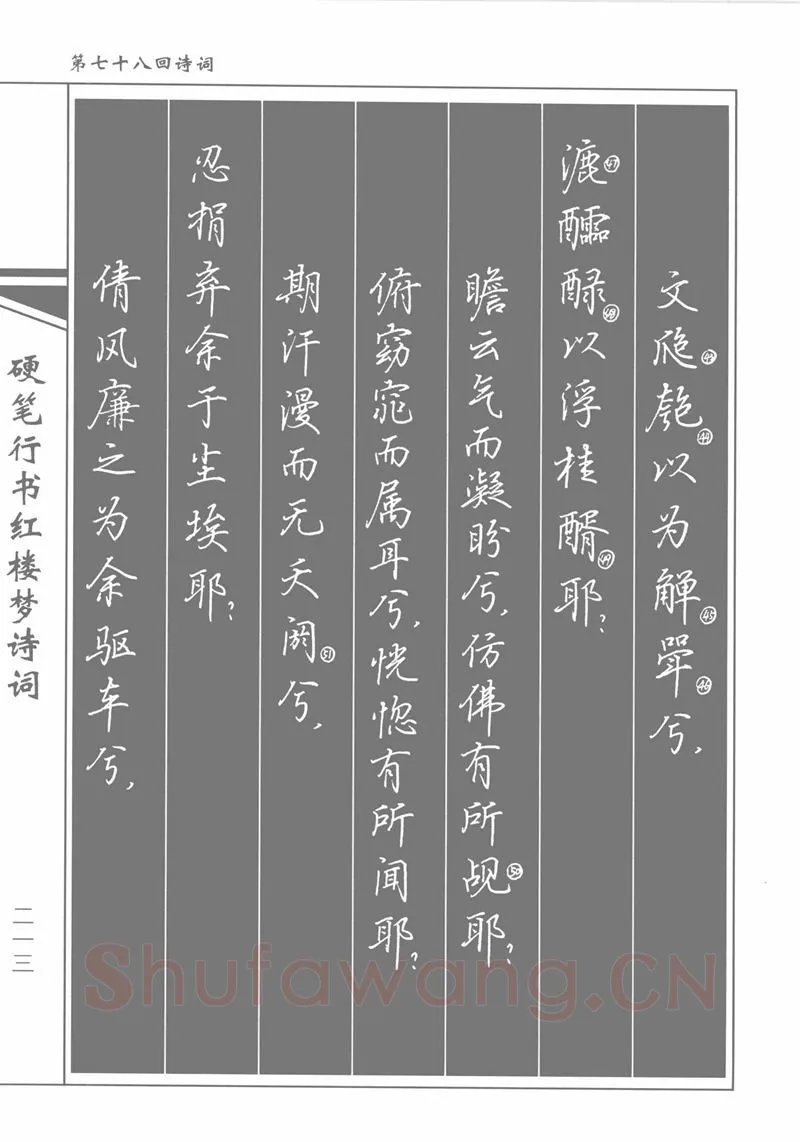 第七十八回诗词
文瓟㊸匏㊹以为觯㊺斝㊻兮，
漉㊼醽醁㊽以浮桂醑㊾耶？
瞻云气而凝盼兮，仿佛有所觇㊿耶？
俯窈窕而属耳兮，恍惚有所闻耶？
期汗漫而无夭阏(51)兮，
忍捐弃余于尘埃耶？
倩风廉之为余驱车兮，
硬笔行书红楼梦诗词
二一三
Shufawang.CN